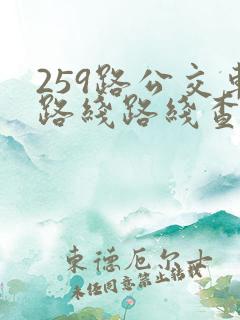 259路公交车
路线路线查
東德厄尔士
未经同意禁止转载